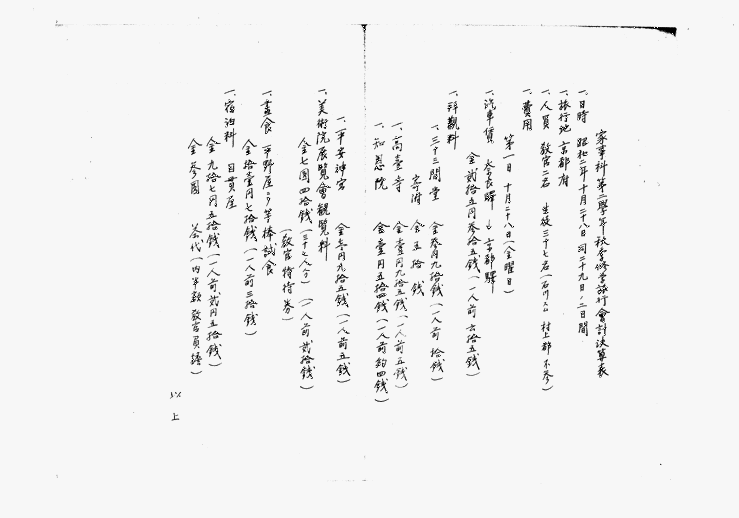 家事科第二學年秋季修學旅行會計決算表
一、日時 昭和二年十月二十八日 同二十九日、二日間
一、旅行地 京都府
一、人員 教官二名 生徒三十七名(石川 村上 郡 不参)
一、費用
第一日 十月二十八日(金曜日)
一、汽車賃 奈良驛 ↓ 京都驛
金貳拾五円参拾五銭(一人前 六拾五銭)
一、拜觀料
一、三十三間堂 金参円九拾銭(一人前 拾銭)
寄附 金五拾銭
一、高臺寺 金壹円九拾五銭(一人前五銭)
一、知恩院 金壹円五拾四銭(一人前約四銭)
一、平安神宮 金壱円九拾五銭(一人前五銭)
一、美術院展覧會観覧料
金七圓四拾銭(三十七人分)(一人前貳拾銭)
(教官待待券)
一、晝食 平野屋ノ芋棒試食
金拾壹円七拾銭(一人前三拾銭)
一、宿泊料 日貫屋
金九拾七円五拾銭(一人前、貳円五拾銭)
金参圓 茶代(内半額教官負擔)
以上